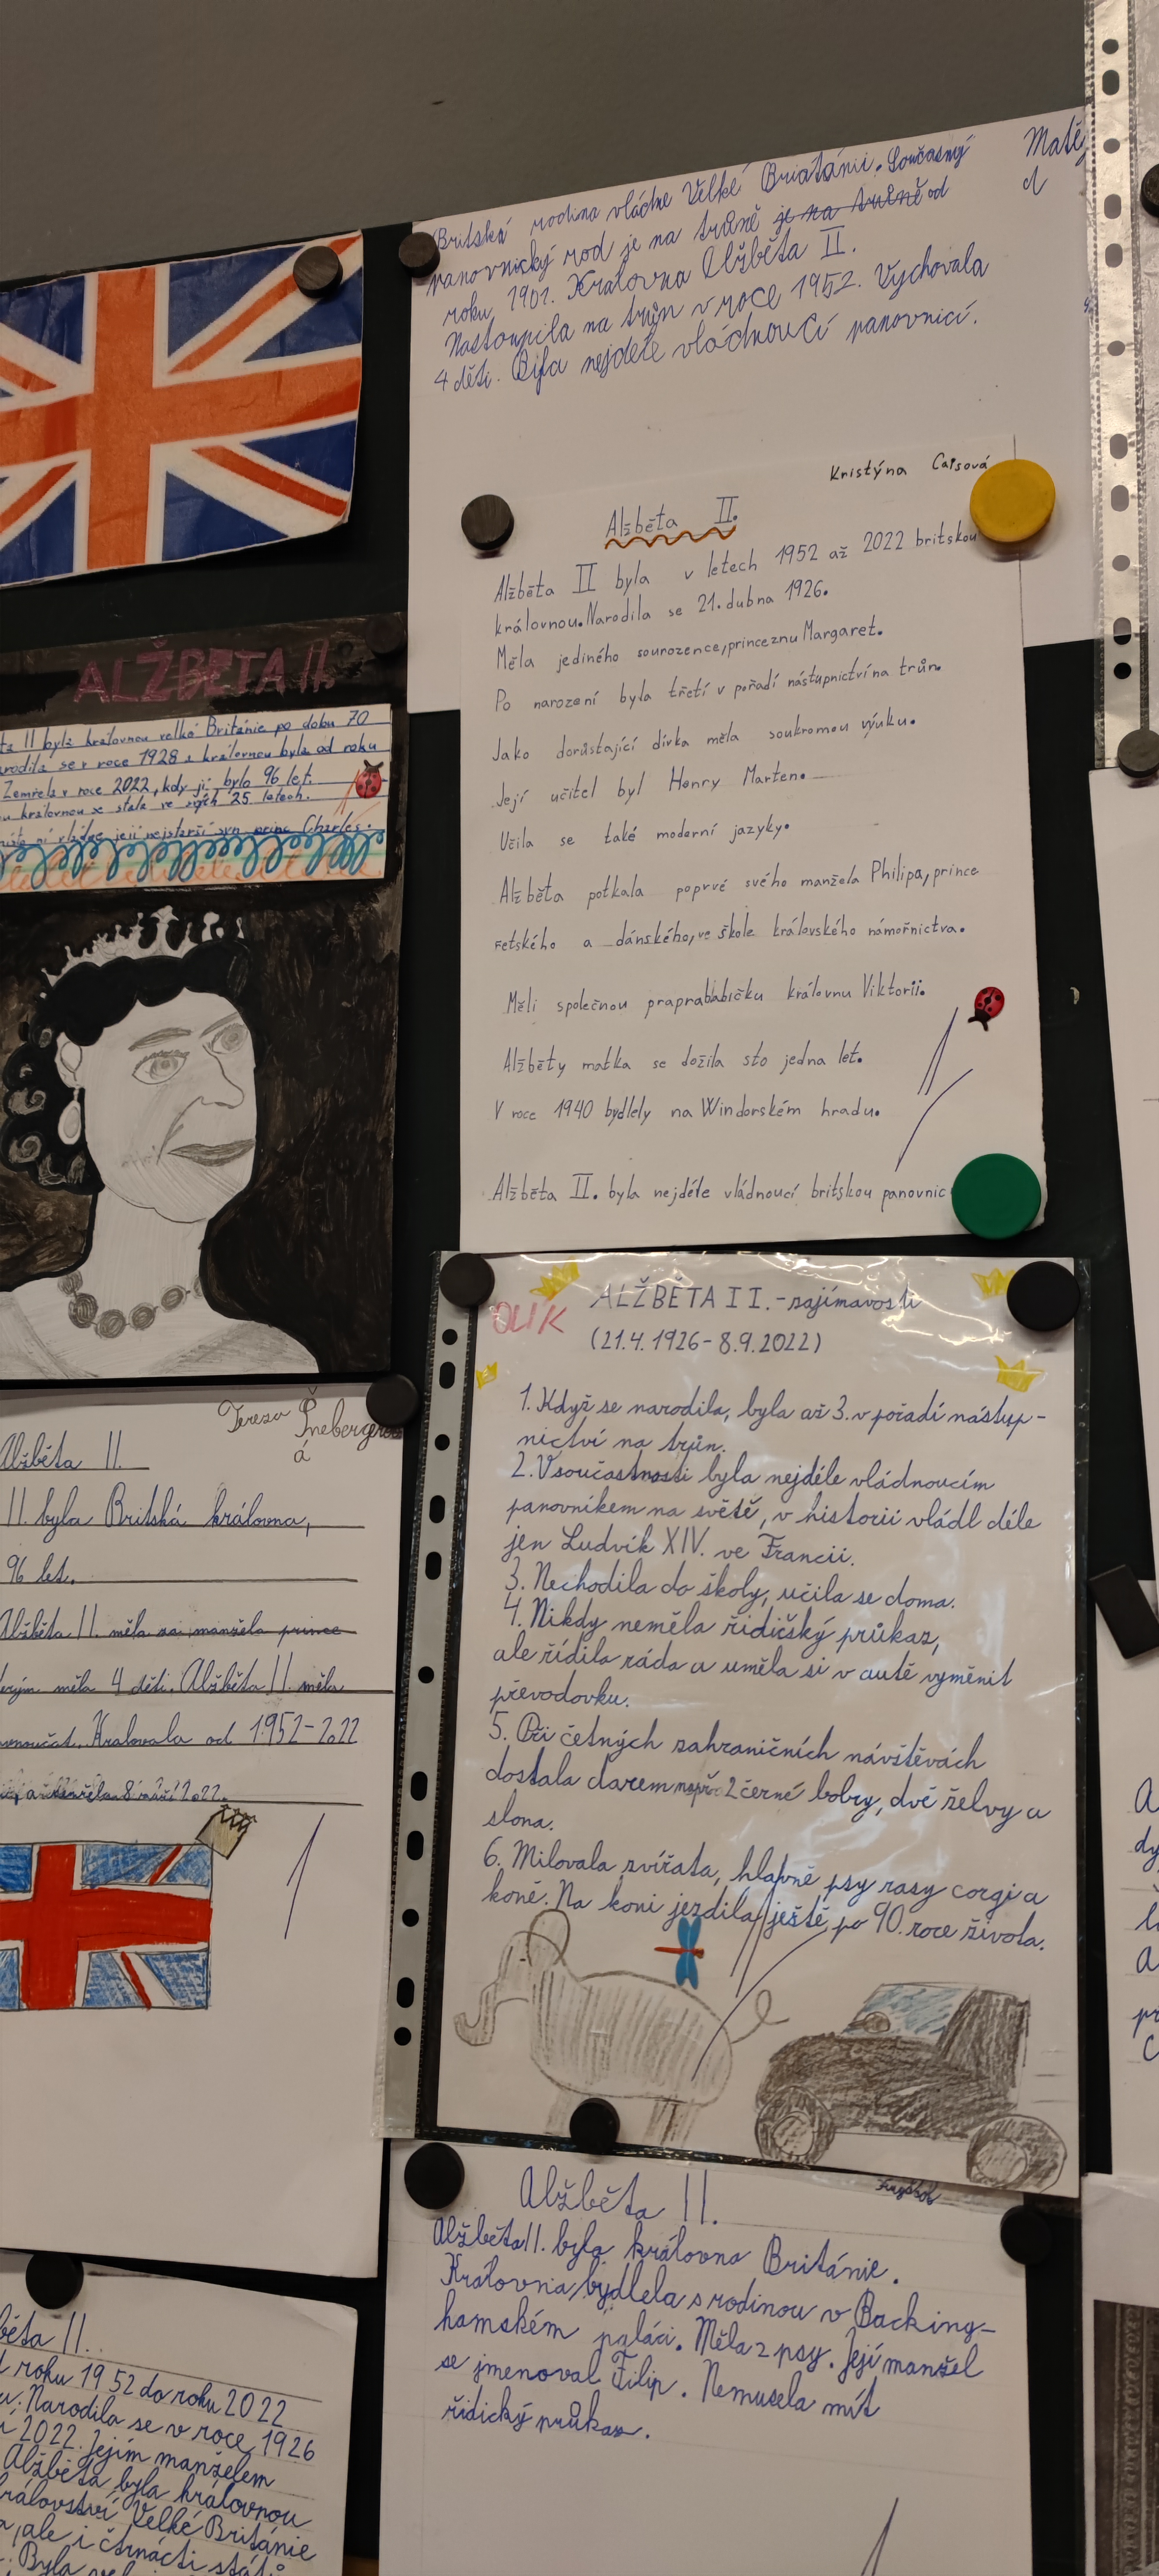 Britská rodina vládne Velké Briatánii. Současný
panovnický rod je na trůně je na trůně od
roku 1901. Kralovna Alžběta II.
Nastoupila na trůn v roce 1952. Vychovala
4 děti. Byla nejdéle vládnoucí panovnicí.
Matěj
Kristýna Caisová
Alžběta II.
Alžběta II byla v letech 1952 až 2022 britskou
královnou. Narodila se 21. dubna 1926.
Měla jediného sourozence, princeznu Margaret.
Po narození byla třetí v pořadí nástupnictví na trůn.
Jako dorůstající dívka měla soukromou výuku.
Její učitel byl Henry Marten.
Učila se také moderní jazyky.
Alžběta potkala poprvé svého manžela Philipa, prince
řetského a dánského, ve škole královského námořnictva.
Měli společnou praprababičku královnu Viktorii.
Alžběty matka se dožila sto jedna let.
V roce 1940 bydlely na Windorském hradu.
Alžběta II. byla nejdéle vládnoucí britskou panovnic
ALŽBĚTA II.
ta II byla královnou velké Británie po dobu 70
arodila se v roce 1928 a královnou byla od roku
Zemřela v roce 2022, kdy jí bylo 96 let.
u královnou se stala ve svých 25 letech.
místo ní vládne její nejstarší syn princ Charles.
OLIK
ALŽBĚTA II. - zajímavosti
(21.4.1926 - 8.9.2022)
1. Když se narodila, byla až 3. v pořadí nástup-
nictví na trůn.
2. V součastnosti byla nejdéle vládnoucím
panovníkem na světě, v historii vládl déle
jen Ludvík XIV. ve Francii.
3. Nechodila do školy, učila se doma.
4. Nikdy neměla řidičský průkaz,
ale řídila ráda a uměla si v autě vyměnit
převodovku.
5. Při četných zahraničních návštěvách
dostala darem např. 2 černé bobry, dvě želvy a
slona.
6. Milovala zvířata, hlavně psy rasy corgi a
koně. Na koni jezdila ještě po 90. roce života.
Tereza Šnebergerová
á
Alžběta II.
II. byla Britská královna,
96 let.
Alžběta II. měla za manžela prince
terým měla 4 děti. Alžběta II. měla
vnoučat. Kralovala od 1952-2022
a zemřela 8 září 2022.
Alžběta II.
Alžběta II. byla královna Británie.
Královna bydlela s rodinou v Backing-
hamském paláci. Měla 2 psy. Její manžel
se jmenoval Filip. Nemusela mít
řidický průkaz.
běta II.
d roku 1952 do roku 2022
u. Narodila se v roce 1926
í 2022. Jejím manželem
Alžběta byla královnou
království Velké Británie
a, ale i čtrnácti států
. Byla